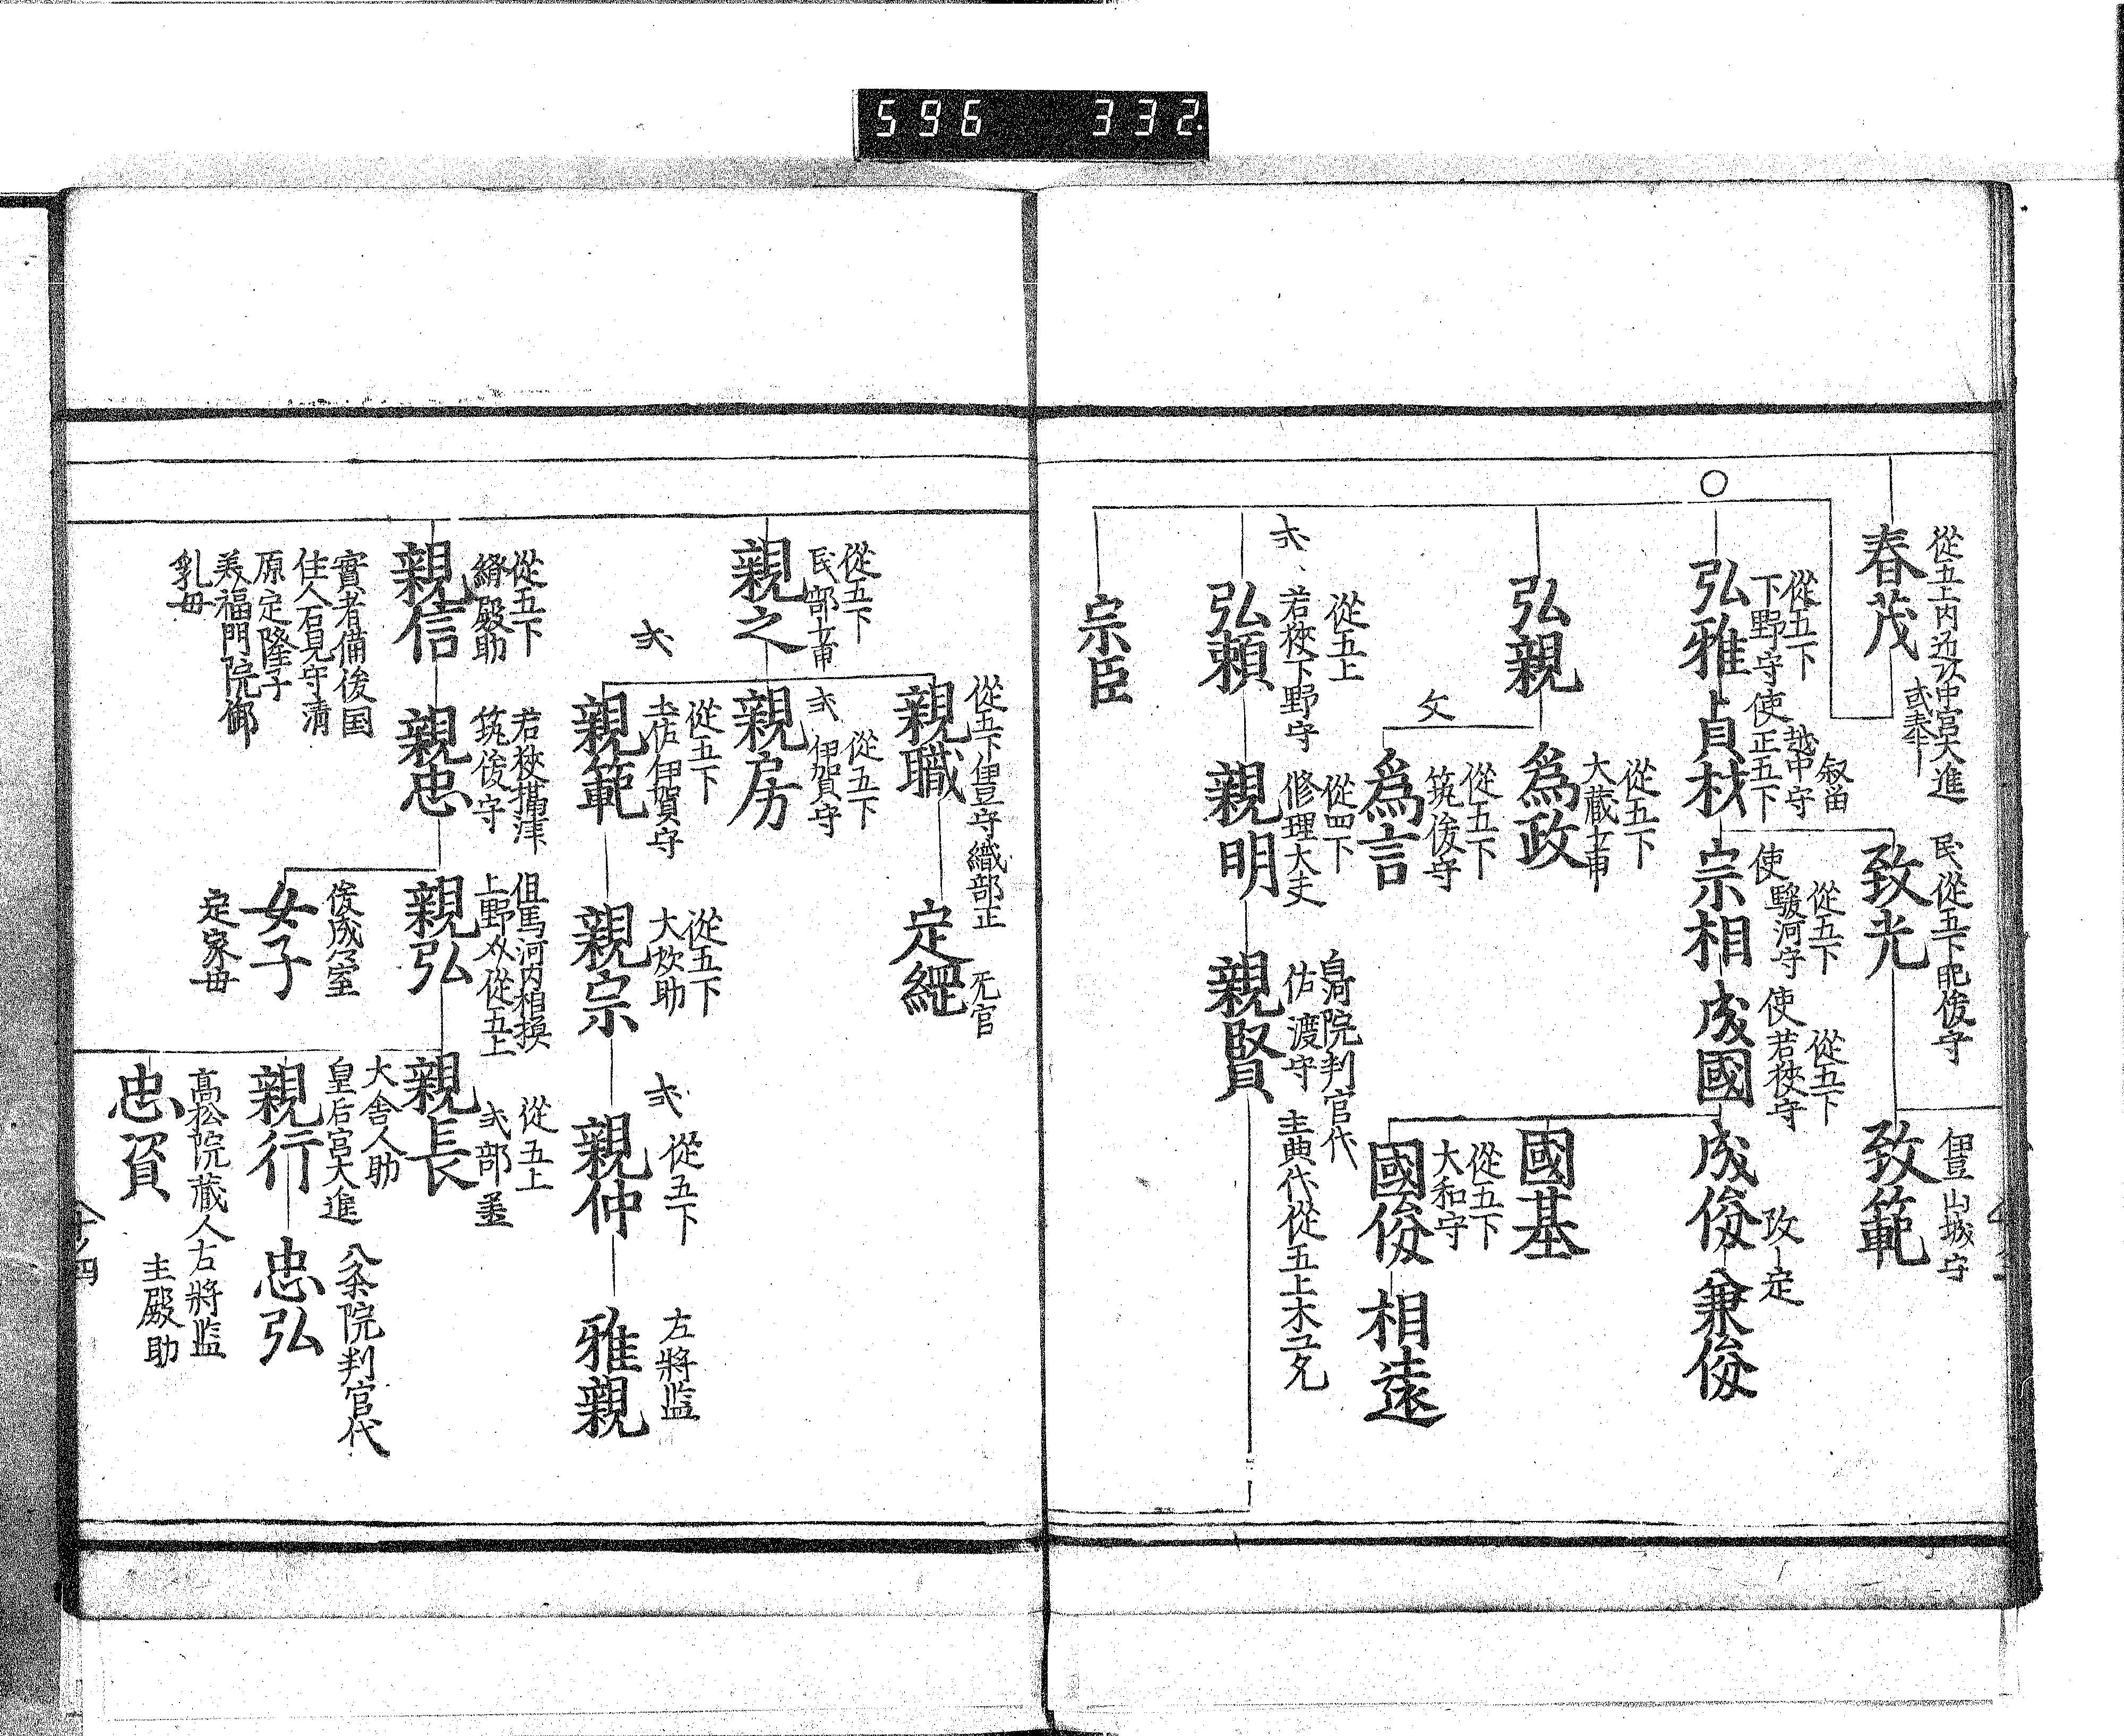 596 332
從五上内迊次中宮大進
春茂
民從五下肥後守
致光
伊豆山城守
致範
○
從五下
下野守
弘雅
叙畄
越中守
使正五下
貞材
從五下
使駿河守
宗相
從五下
使若狹守
成國
攻定
成俊
兼俊
弘親
從五下
大蔵
為政
國基
攵
從五下
筑後守
為言
從五下
大和守
國俊
相遠
從五上
弍若狹下野守
弘頼
從四下
修理大夫
親明
院判官代
佐渡守主典代從五上木工允
親賢
宗臣
從五下伊豆守織部正
親職
无官
定經
從五下
民部
親之
弍從五下
伊賀守
親房
弍
從五下
土佐伊賀守
親範
從五下
大炊助
親宗
弍從五下
親仲
左將監
雅親
從五下
縫殿助
親信
實者備後国
住人石見守清
原定隆子
美福門院御
乳母
若狹攝津
筑後守
親忠
但馬河内相摸
上野從五上
親弘
俊成室
女子
定家母
從五上
弍部丞
親長
大舎人助
皇后宮大進
親行
八条院判官代
忠弘
高松院蔵人右將監
主殿助
忠資